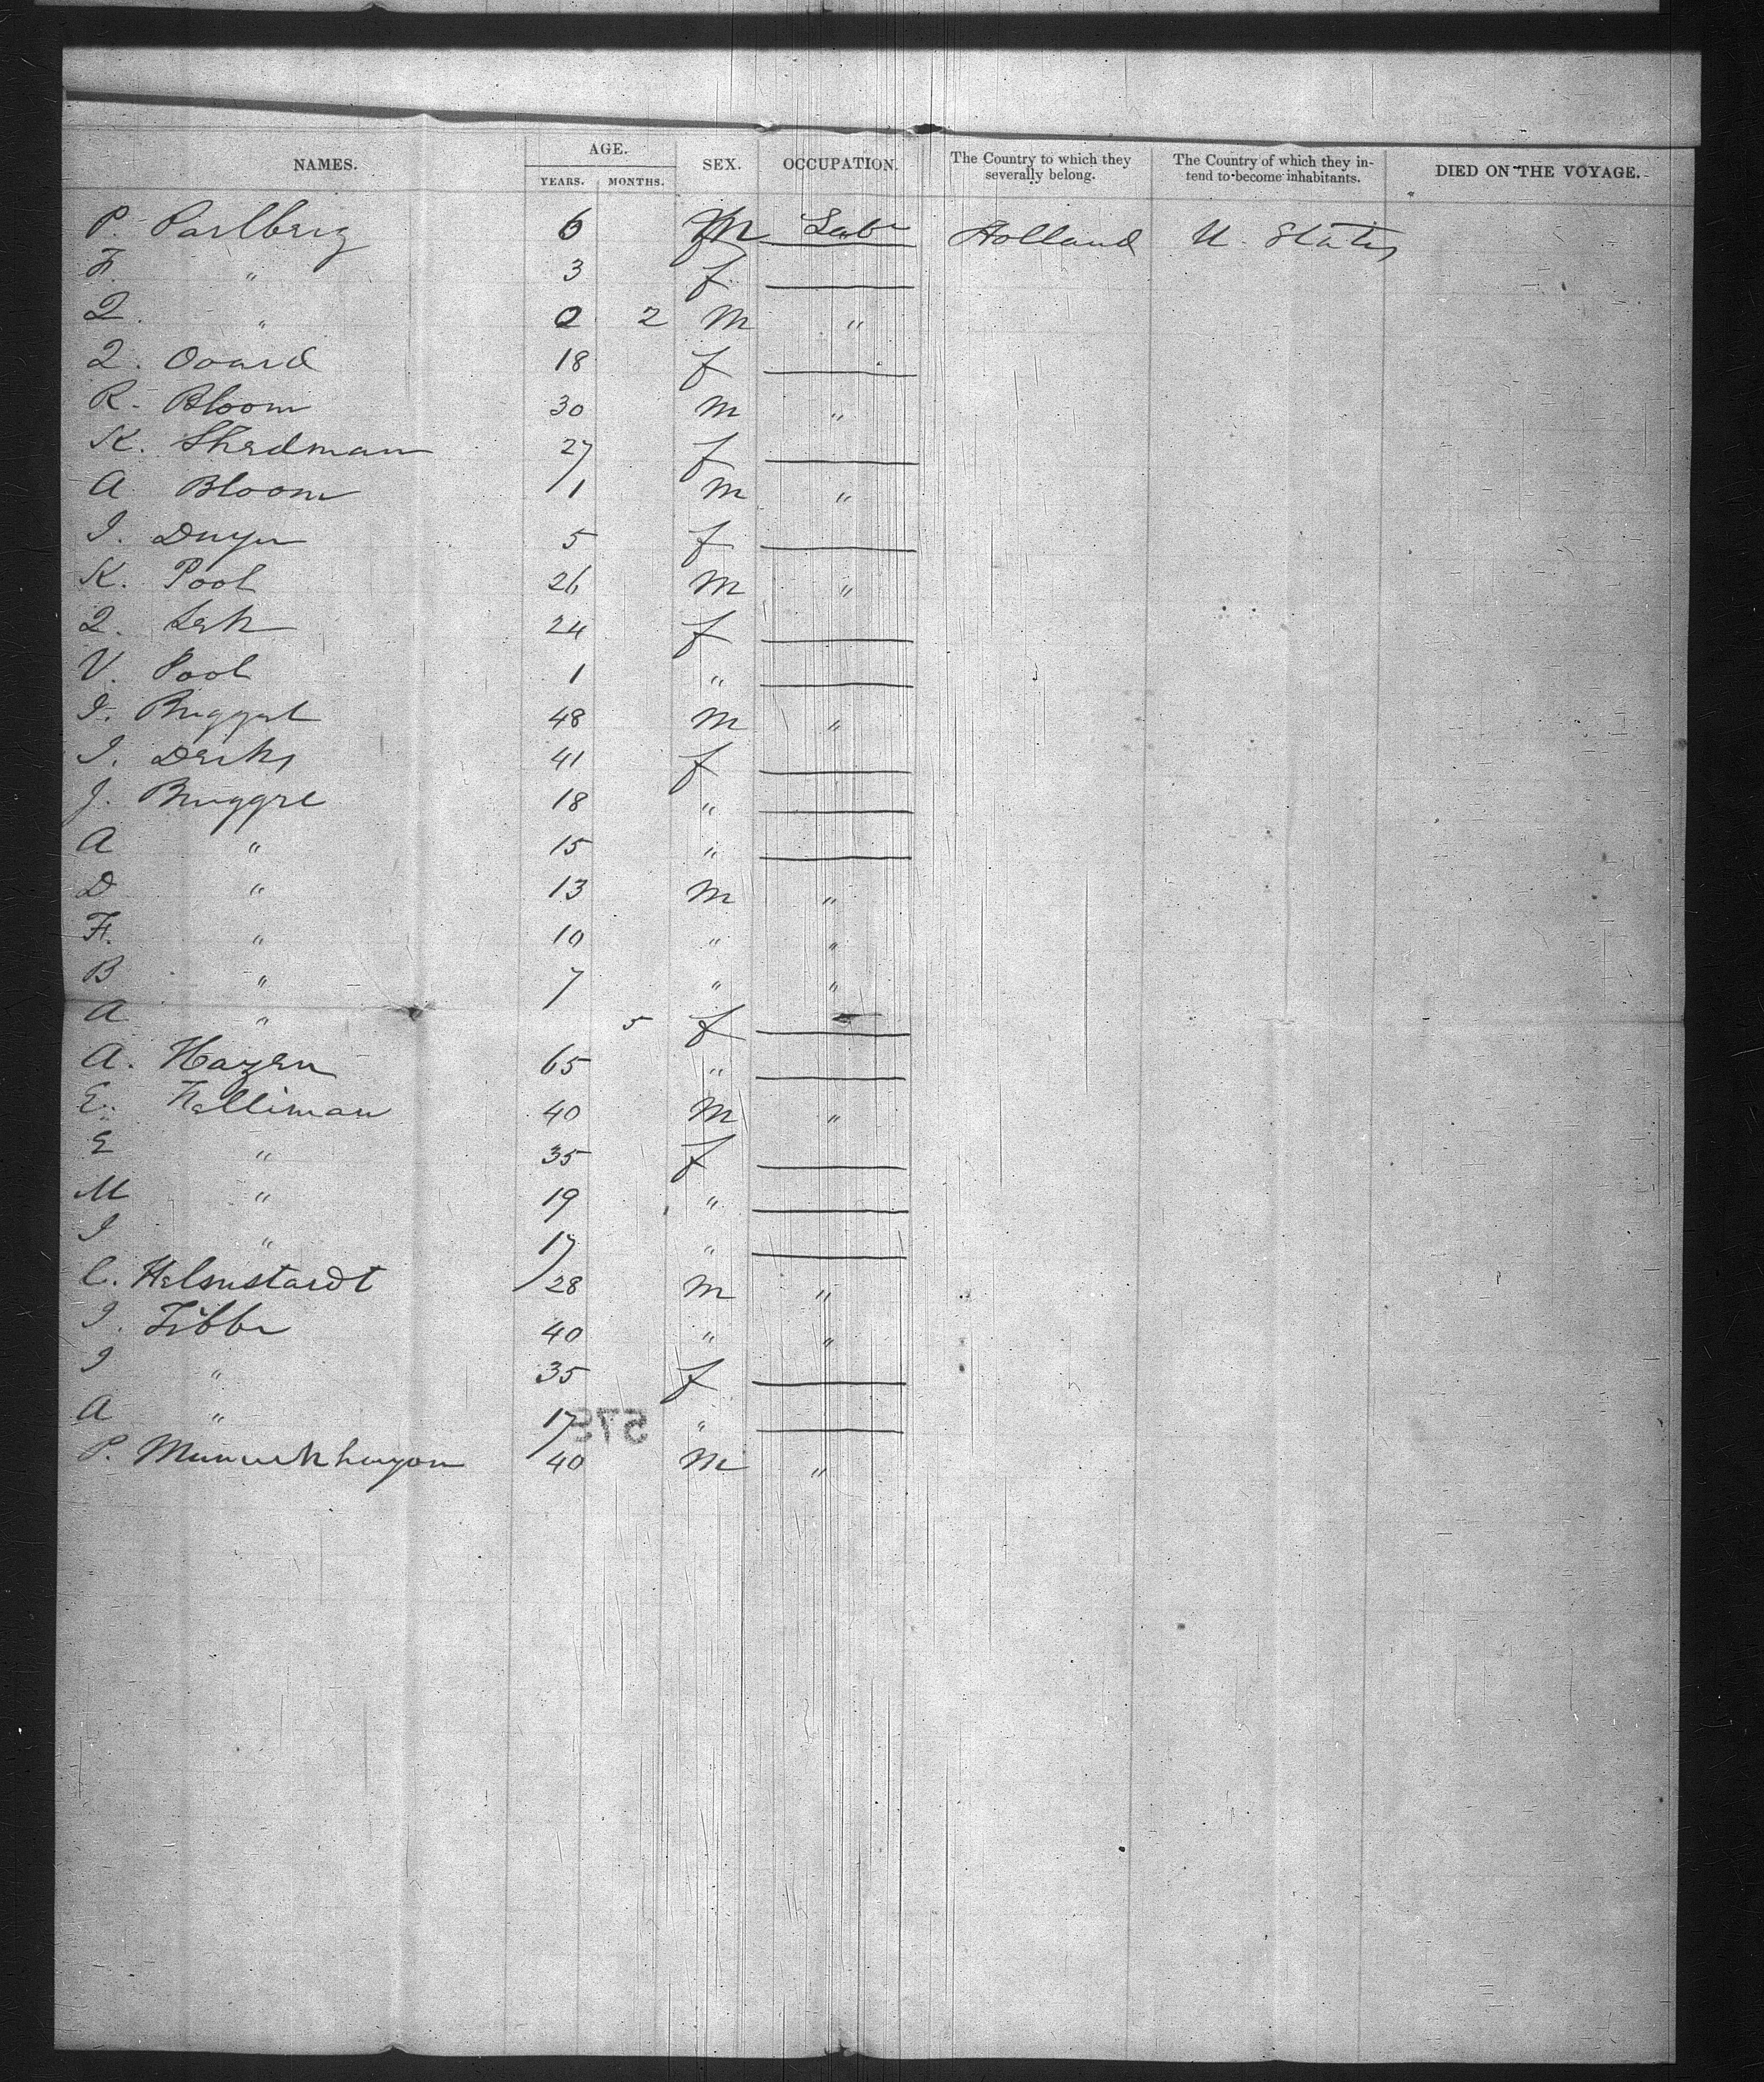 NAMES. AGE. SEX. OCCUPATION. The Country to which they severally belong. The Country of which they in- tend to become inhabitants. DIED ON THE VOYAGE.
YEARS. MONTHS.
P. Parlberg 6 m Labr Holland U. States
F. " 3 f
2. " 0 2 m "
2. Ovard 18 f
R. Bloom 30 m "
K. Stredman 27 f
A Bloom 1 m "
I. Duyn 5 f
K. Pool 26 m "
2. Lek 24 f
V. Pool 1 "
I. Bruggel 48 m "
I. Derks 41 f
J. Bruggre 18 "
A " 15 "
D " 13 m "
F. " 10 " "
B " 7 " "
A " 5 f
A. Hazen 65 "
E. Helliman 40 m "
E " 35 f
M " 19 "
I " 17 "
C. Helmstardt 28 m "
I. Fibbe 40 " "
I " 35 f
A " 17 "
P. 40 m "